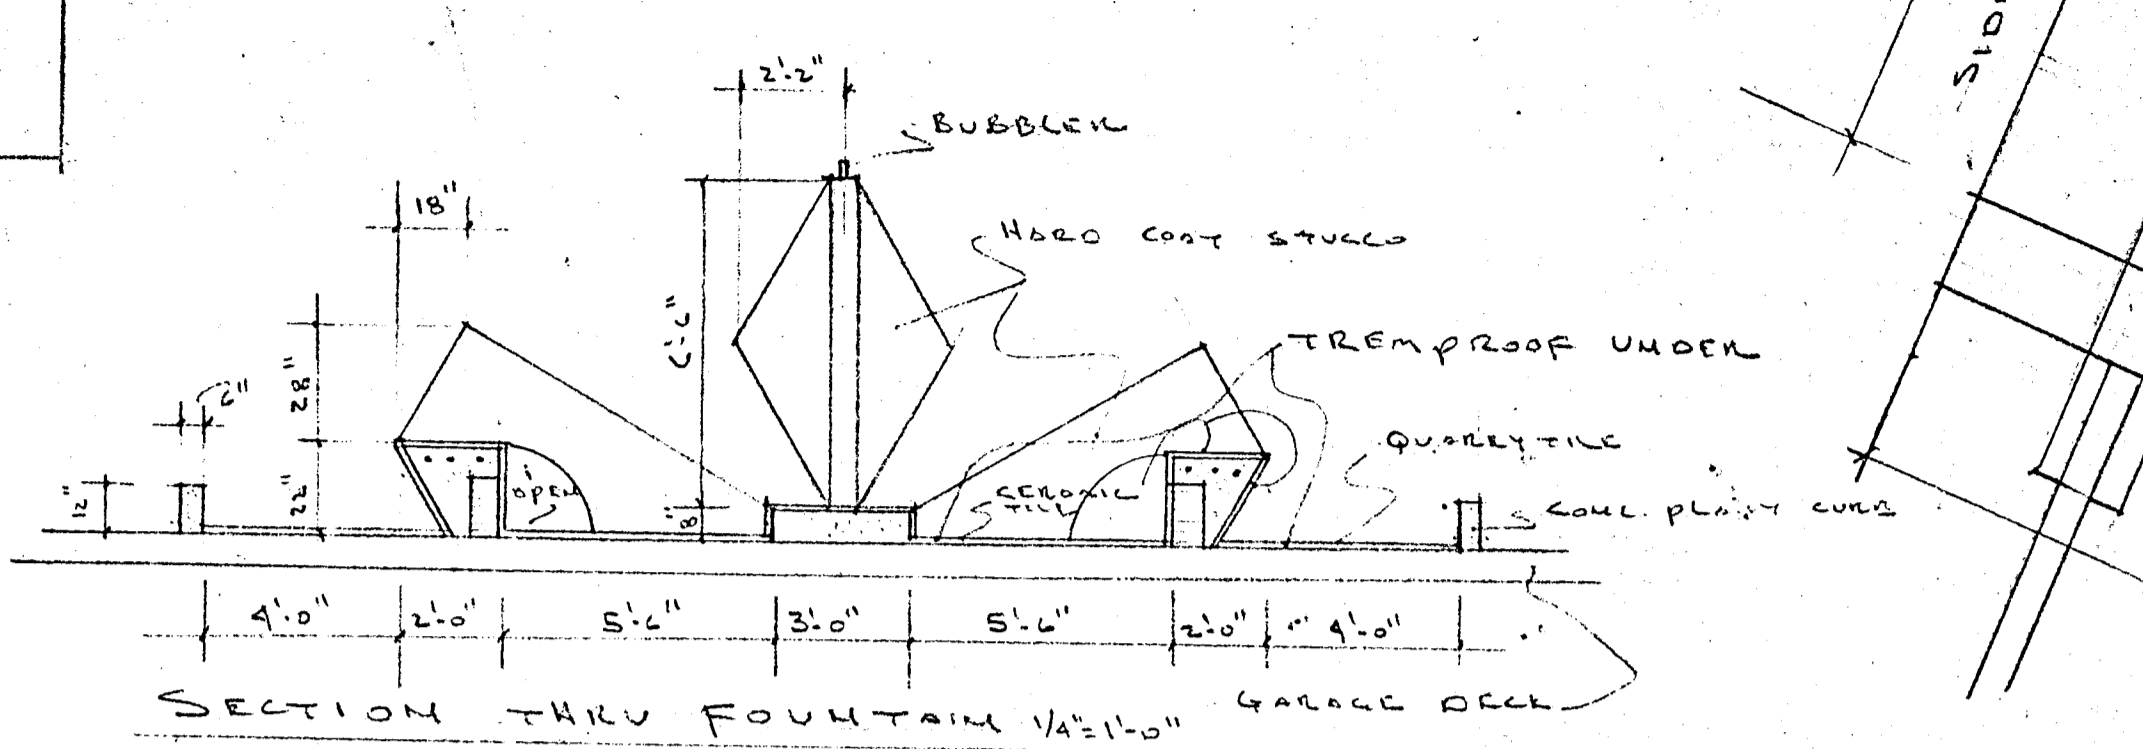 SIDE
2'-2"
BUBBLER
18"
HARD COAT STUCCO
6'-6"
TREMPROOF UNDER
28"
6"
QUARRY TILE
12"
22"
OPEN
8"
CERAMIC
TILE
CONC. PLANT CURB
4'-0" 2'-0" 5'-6" 3'-0" 5'-6" 2'-0" 4'-0"
SECTION THRU FOUNTAIN 1/4"=1'-0"
GARAGE DECK